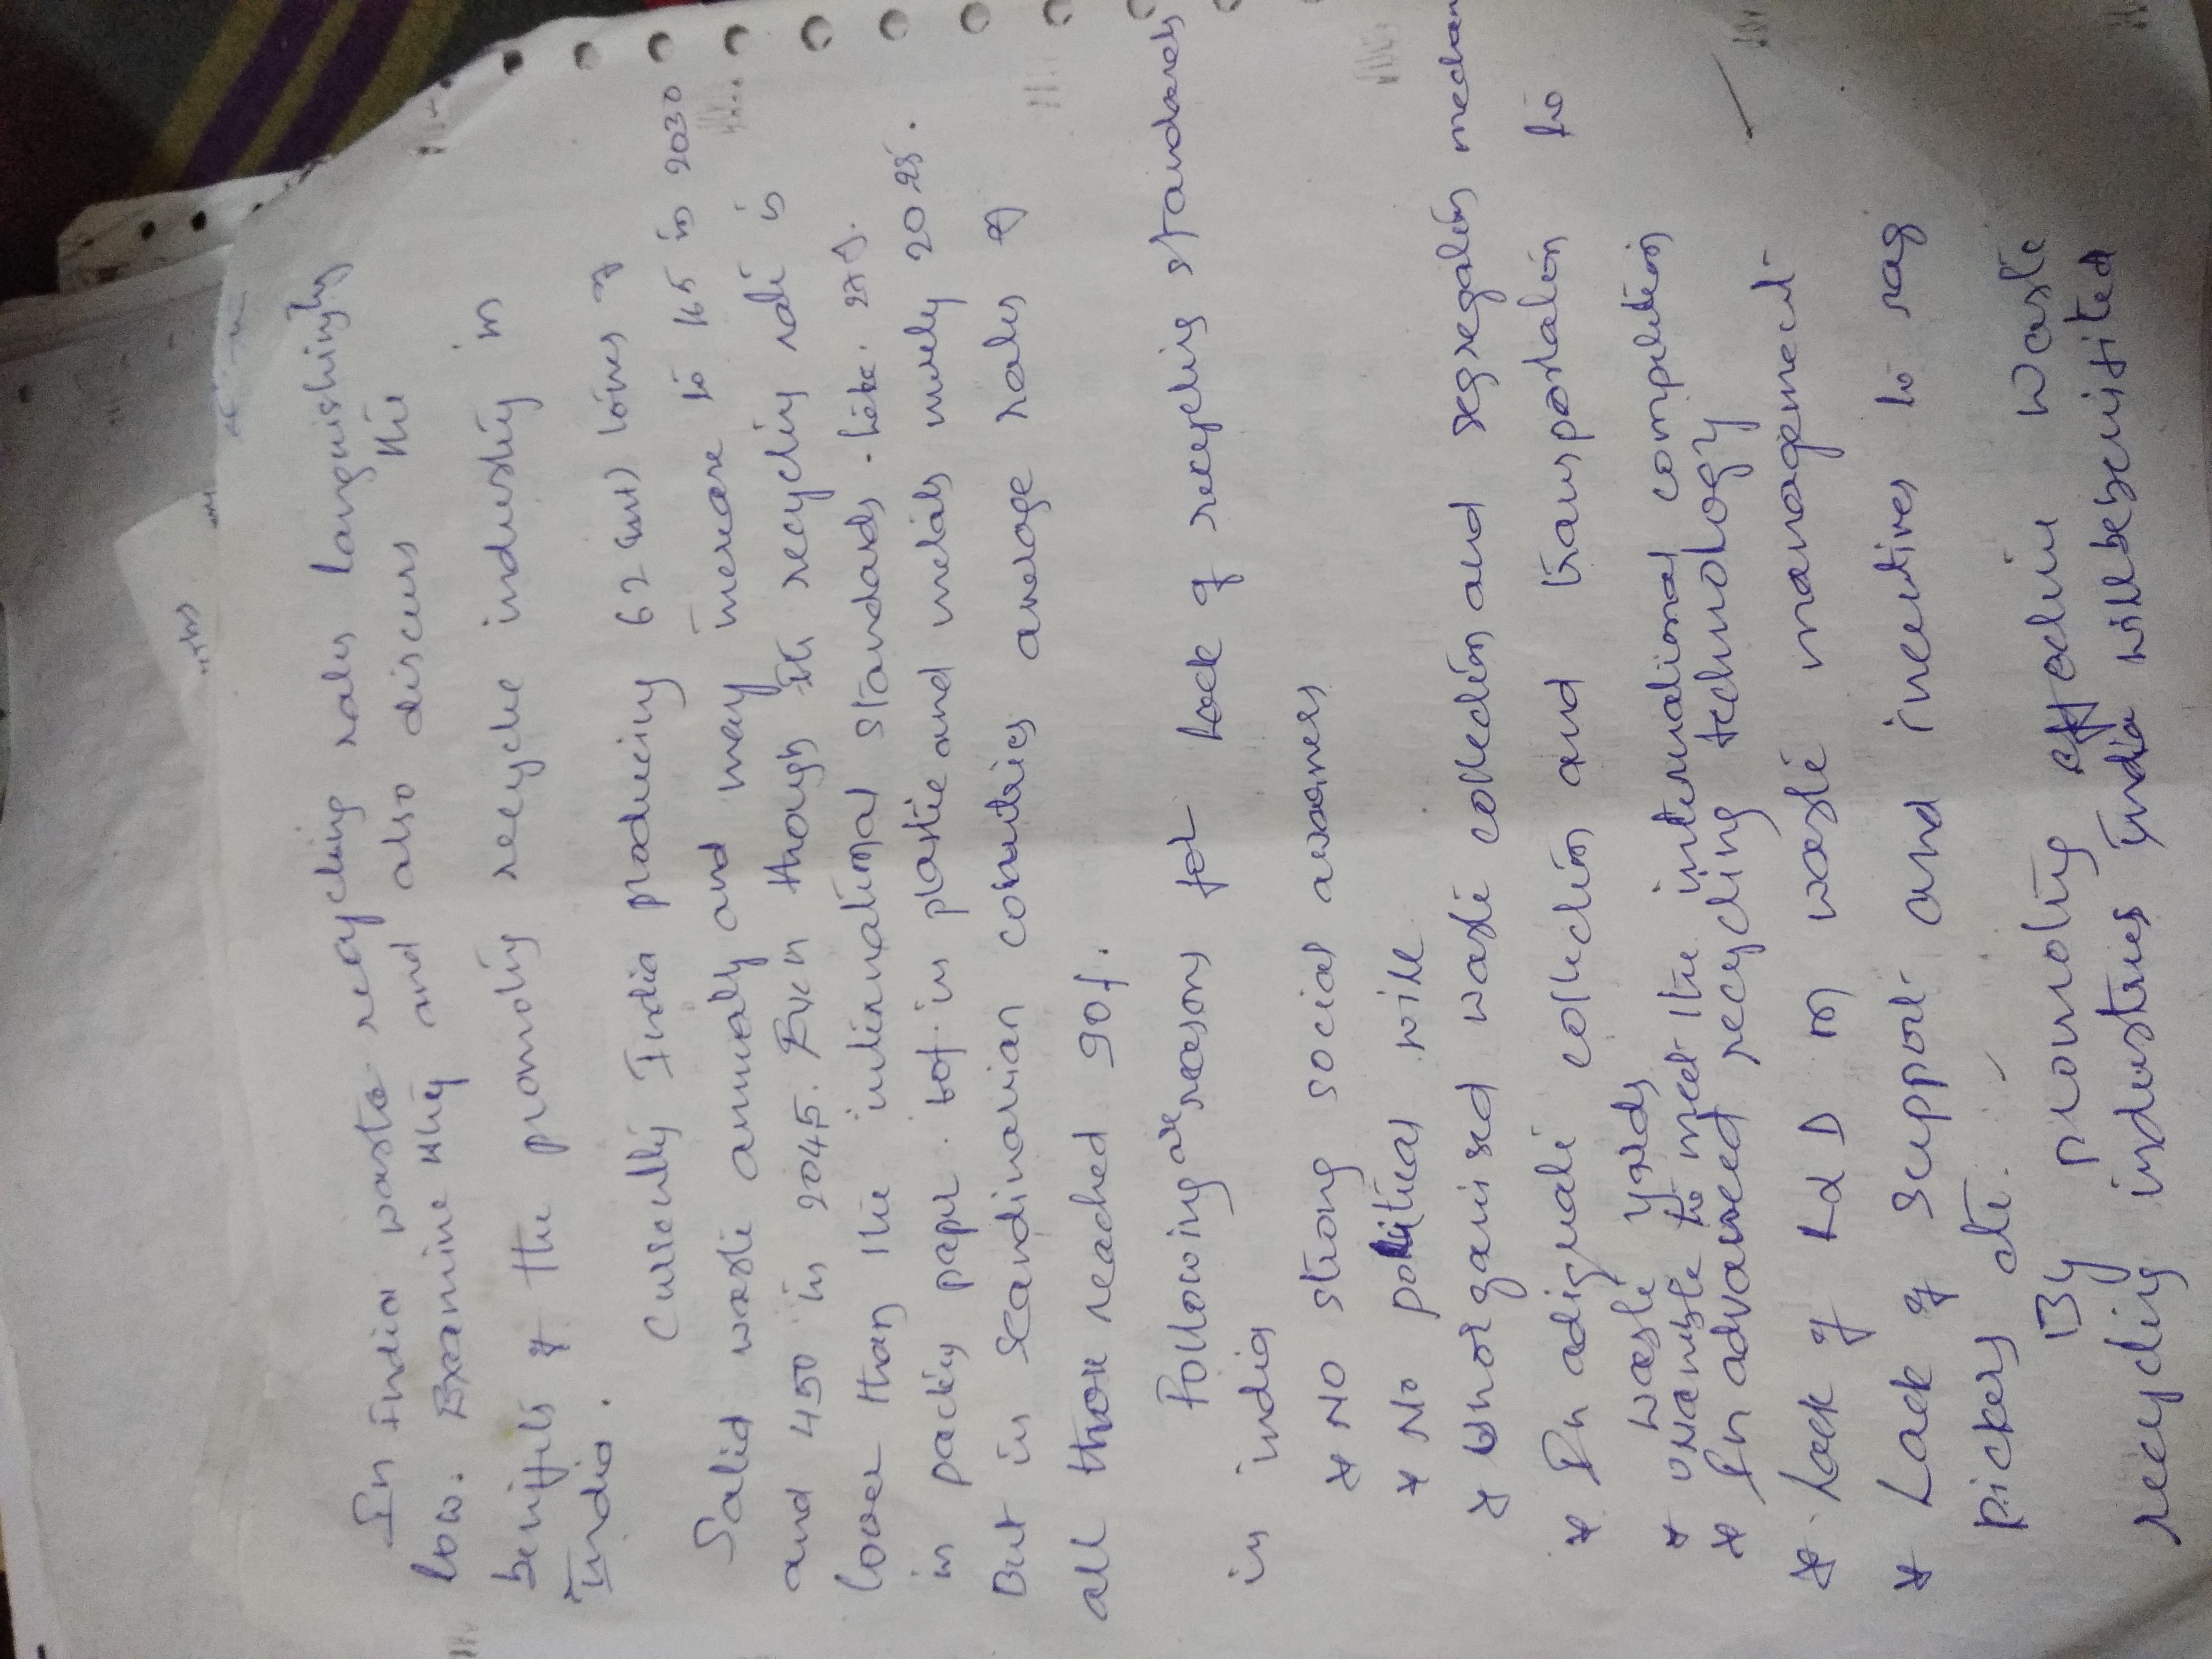 In India waste recycling rates languishingly
low. Examine why and also discuss the
benifits of the promoting recycle industry in
India.
Currently India producing 62 (mt) tones of
Salid waste annualy and may increase to 165 in 2030
and 450 in 2045. Even though Its recycling rate is
lower than the international standards. like. 27%.
in packing paper. 60% in plastic and metals merely 20 25.
But in scandinavian countries average rates of
all those reached 90%.
Following are reasons for lack of recycling standards
in india
* No strong social awarness
* No political will
* Unorganised waste collection and segregation
* In adiquate collection and transportation to
waste yards
* unanble to meet the international competition
* In advanced recycling technology
* Lack of R&D on waste management
* Lack of support and incentives to rag
pickers etc.
By promoting effective waste
recycling industries India will benifited